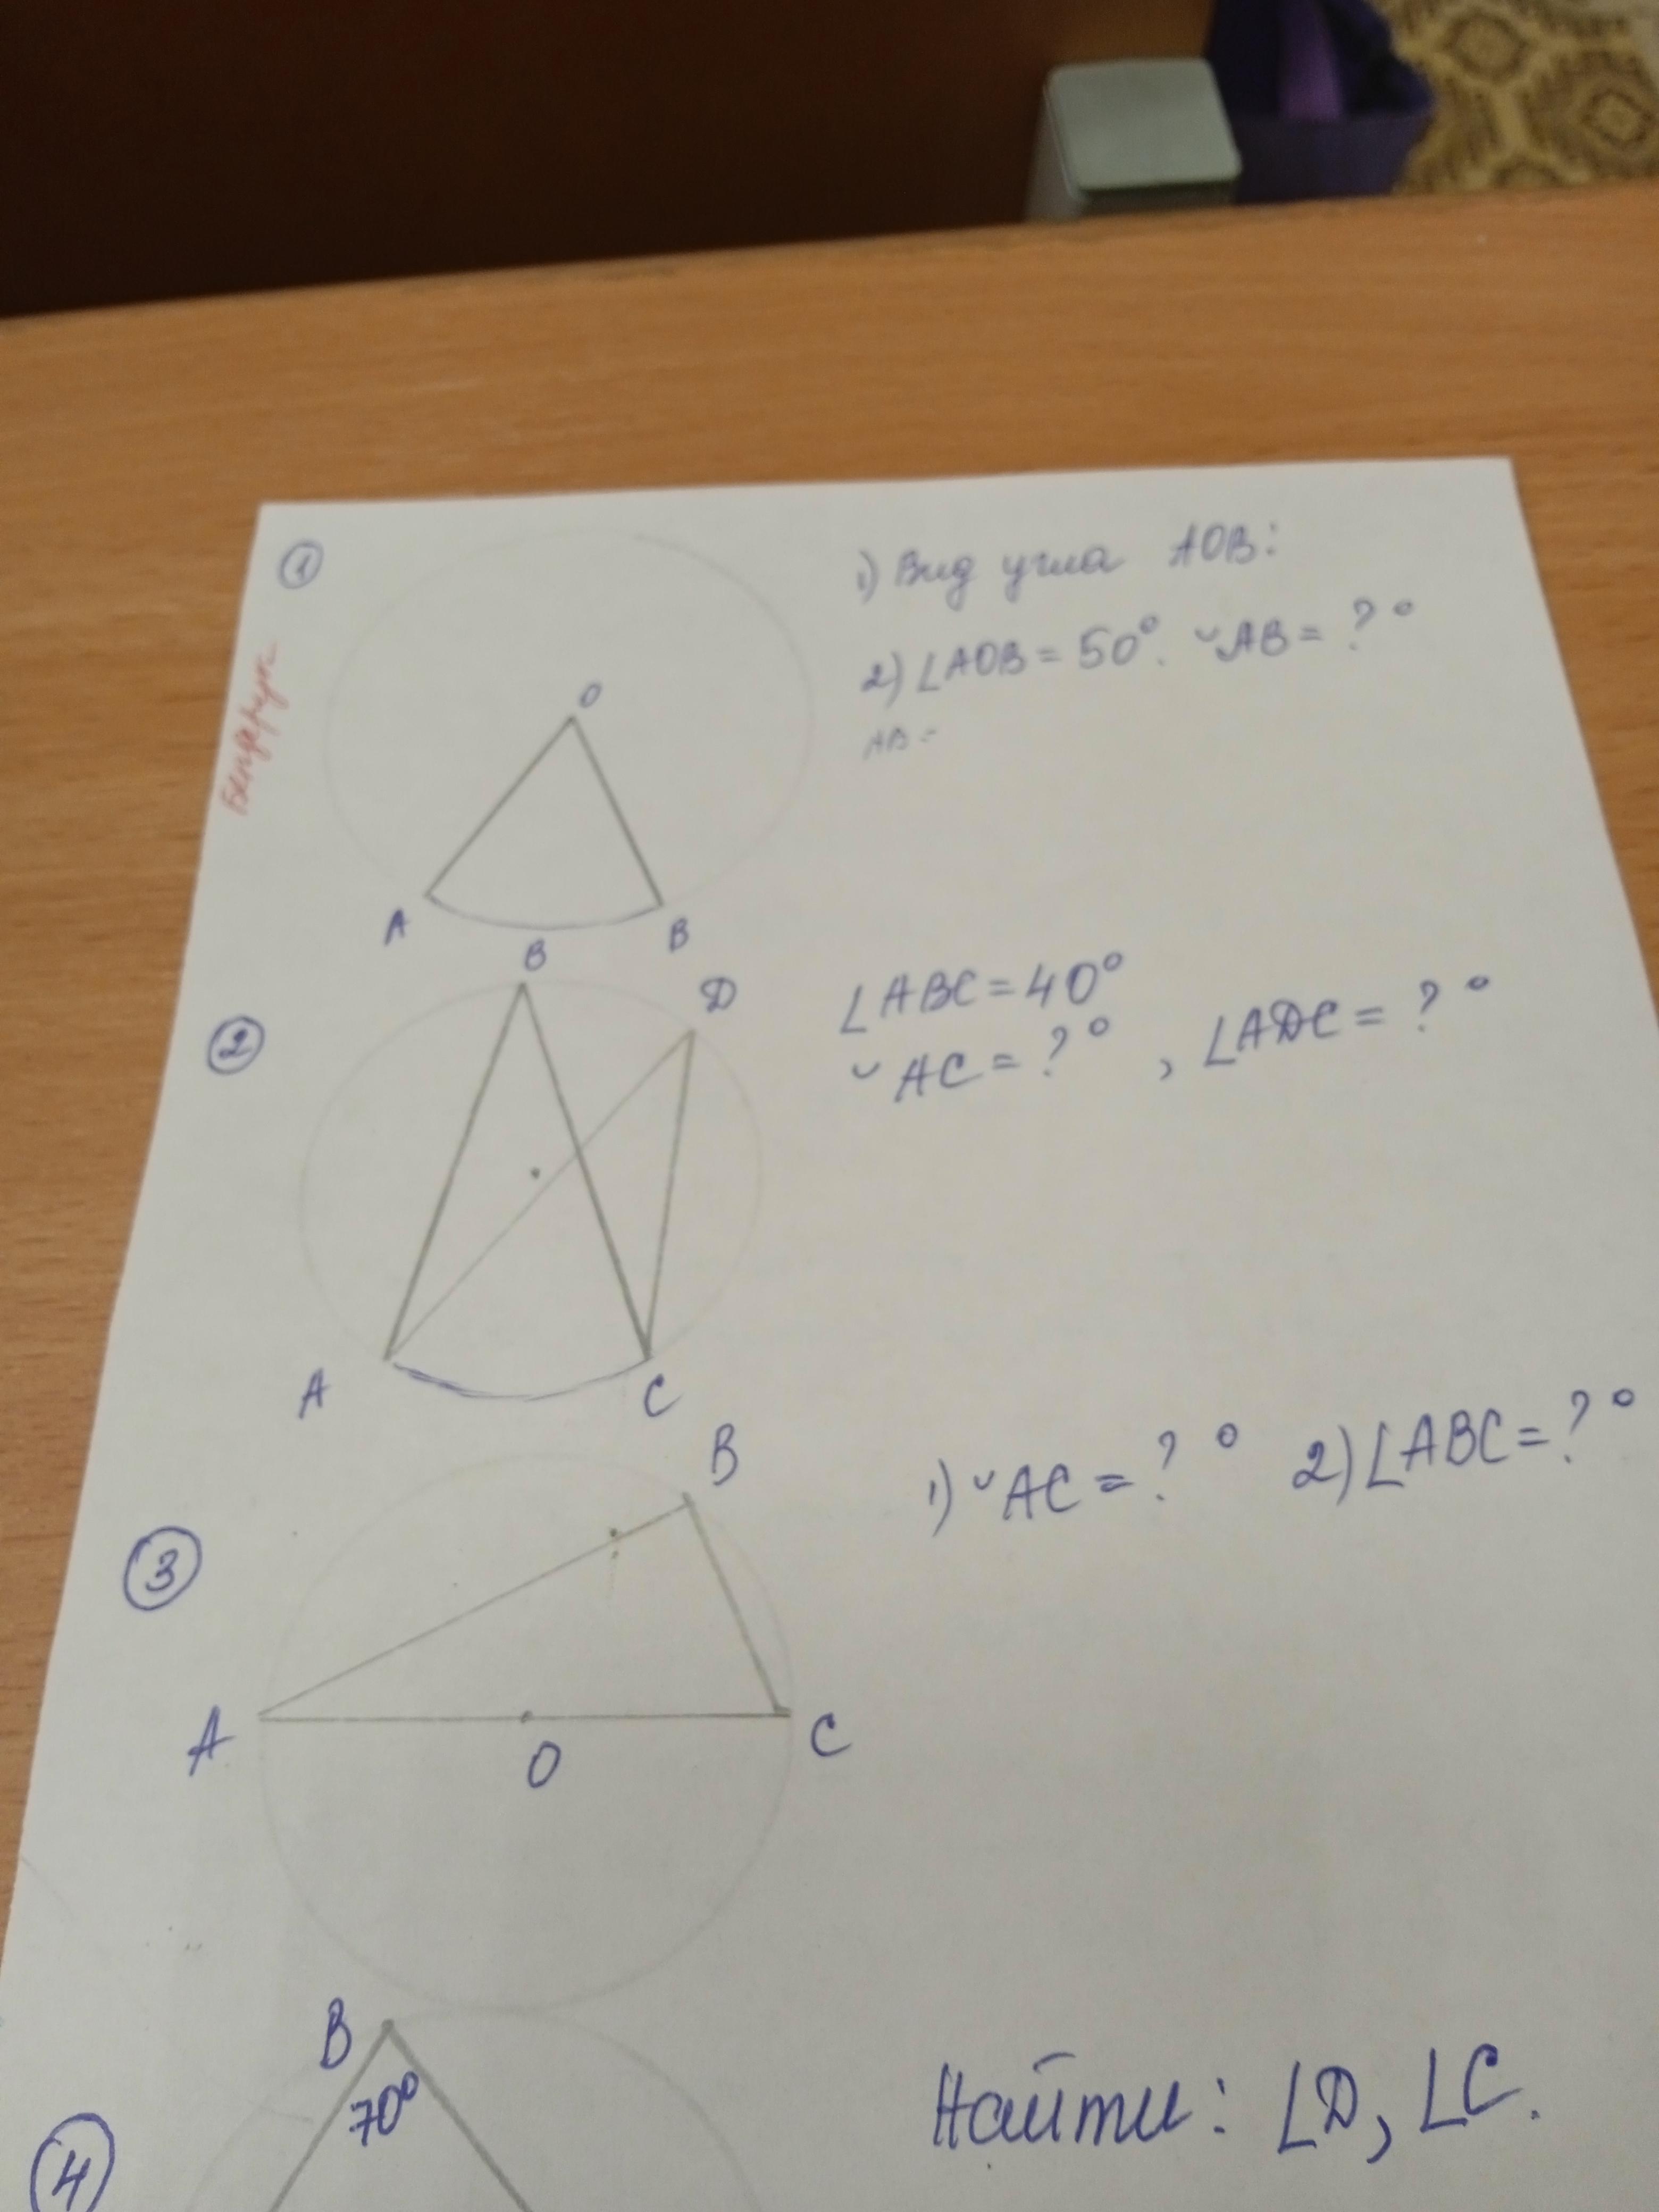 1
1) Вид угла AOB:
2) ∠AOB = 50°. ◡AB = ?°
AB =
O
A
B
2
B
D
∠ABC = 40°
◡AC = ?°, ∠ADC = ?°
A
C
3
B
1) ◡AC = ?° 2) ∠ABC = ?°
A
O
C
4
B
70°
Найти: ∠D, ∠C.